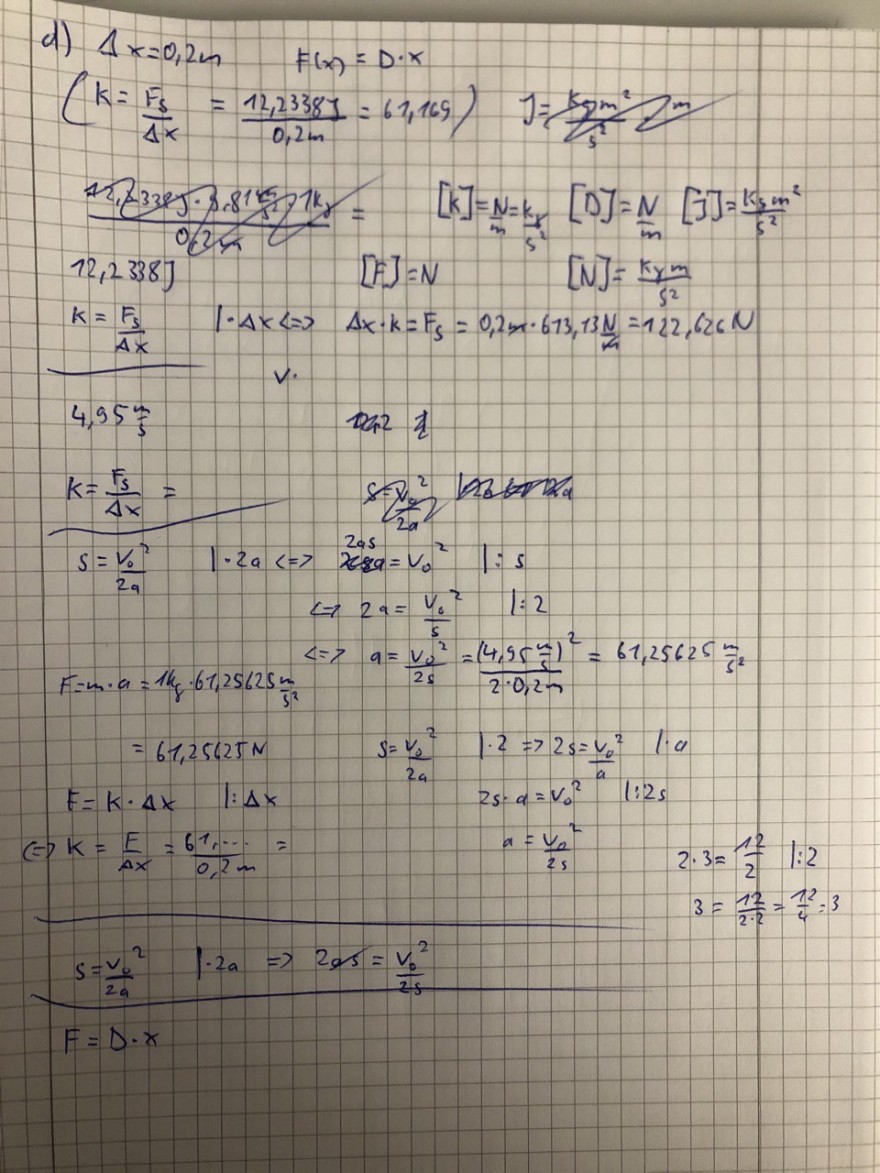 d) Δx=0,2m F(x) = D·x
(K = Fs/Δx = 12,2338J/0,2m = 61,169) J = kgm²/s² · m
12,2338J · 9,81 m/s² · 1kg / 0,2m = [K]=N/m=kg/s² [D]=N/m [J]=kgm²/s²
12,2338J [F]=N [N]=kgm/s²
K = Fs/Δx |·Δx <=> Δx·k = Fs = 0,2m·613,13 N/m = 122,626 N
v.
4,95 m/s
K = Fs/Δx = s=v₀²/2a
s = v₀²/2a |·2a <=> 2as = v₀² |: s
<=> 2a = v₀²/s |:2
<=> a = v₀²/2s = (4,95 m/s)²/2·0,2m = 61,25625 m/s²
F=m·a = 1kg·61,25625 m/s²
= 61,25625 N s=v₀²/2a |·2 => 2s=v₀²/a |·a
F = K·Δx |:Δx 2s·a = v₀² |:2s
<=> K = F/Δx = 61,.../0,2m = a = v₀²/2s 2·3=12/2 |:2
3 = 12/2·2 = 12/4 = 3
s=v₀²/2a |·2a => 2as = v₀²/2s
F = D·x